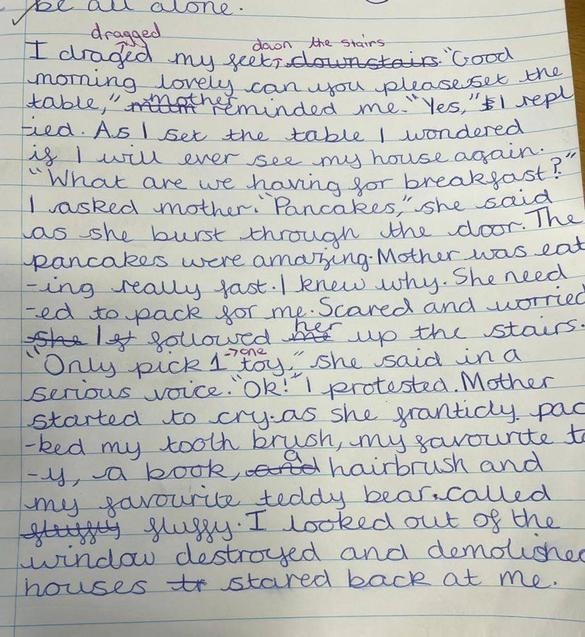 be all alone.
dragged
down the stairs
I draged my feet downstairs. "Good
morning lovely can you please set the
mother
table," mum reminded me. "Yes," I repl
-ied. As I set the table I wondered
if I will ever see my house again.
"What are we having for breakfast?"
I asked mother. "Pancakes," she said
as she burst through the door. The
pancakes were amazing. Mother was eat
-ing really fast. I knew why. She need
-ed to pack for me. Scared and worried
her
she I followed me up the stairs.
→one
"Only pick 1 toy," she said in a
serious voice. "Ok!" I protested. Mother
started to cry.as she franticly pac
-ked my tooth brush, my favourite to
-y, a book, and a hairbrush and
my favourite teddy bear.called
fluffy fluffy. I looked out of the
window destroyed and demolishe
houses tr stared back at me.